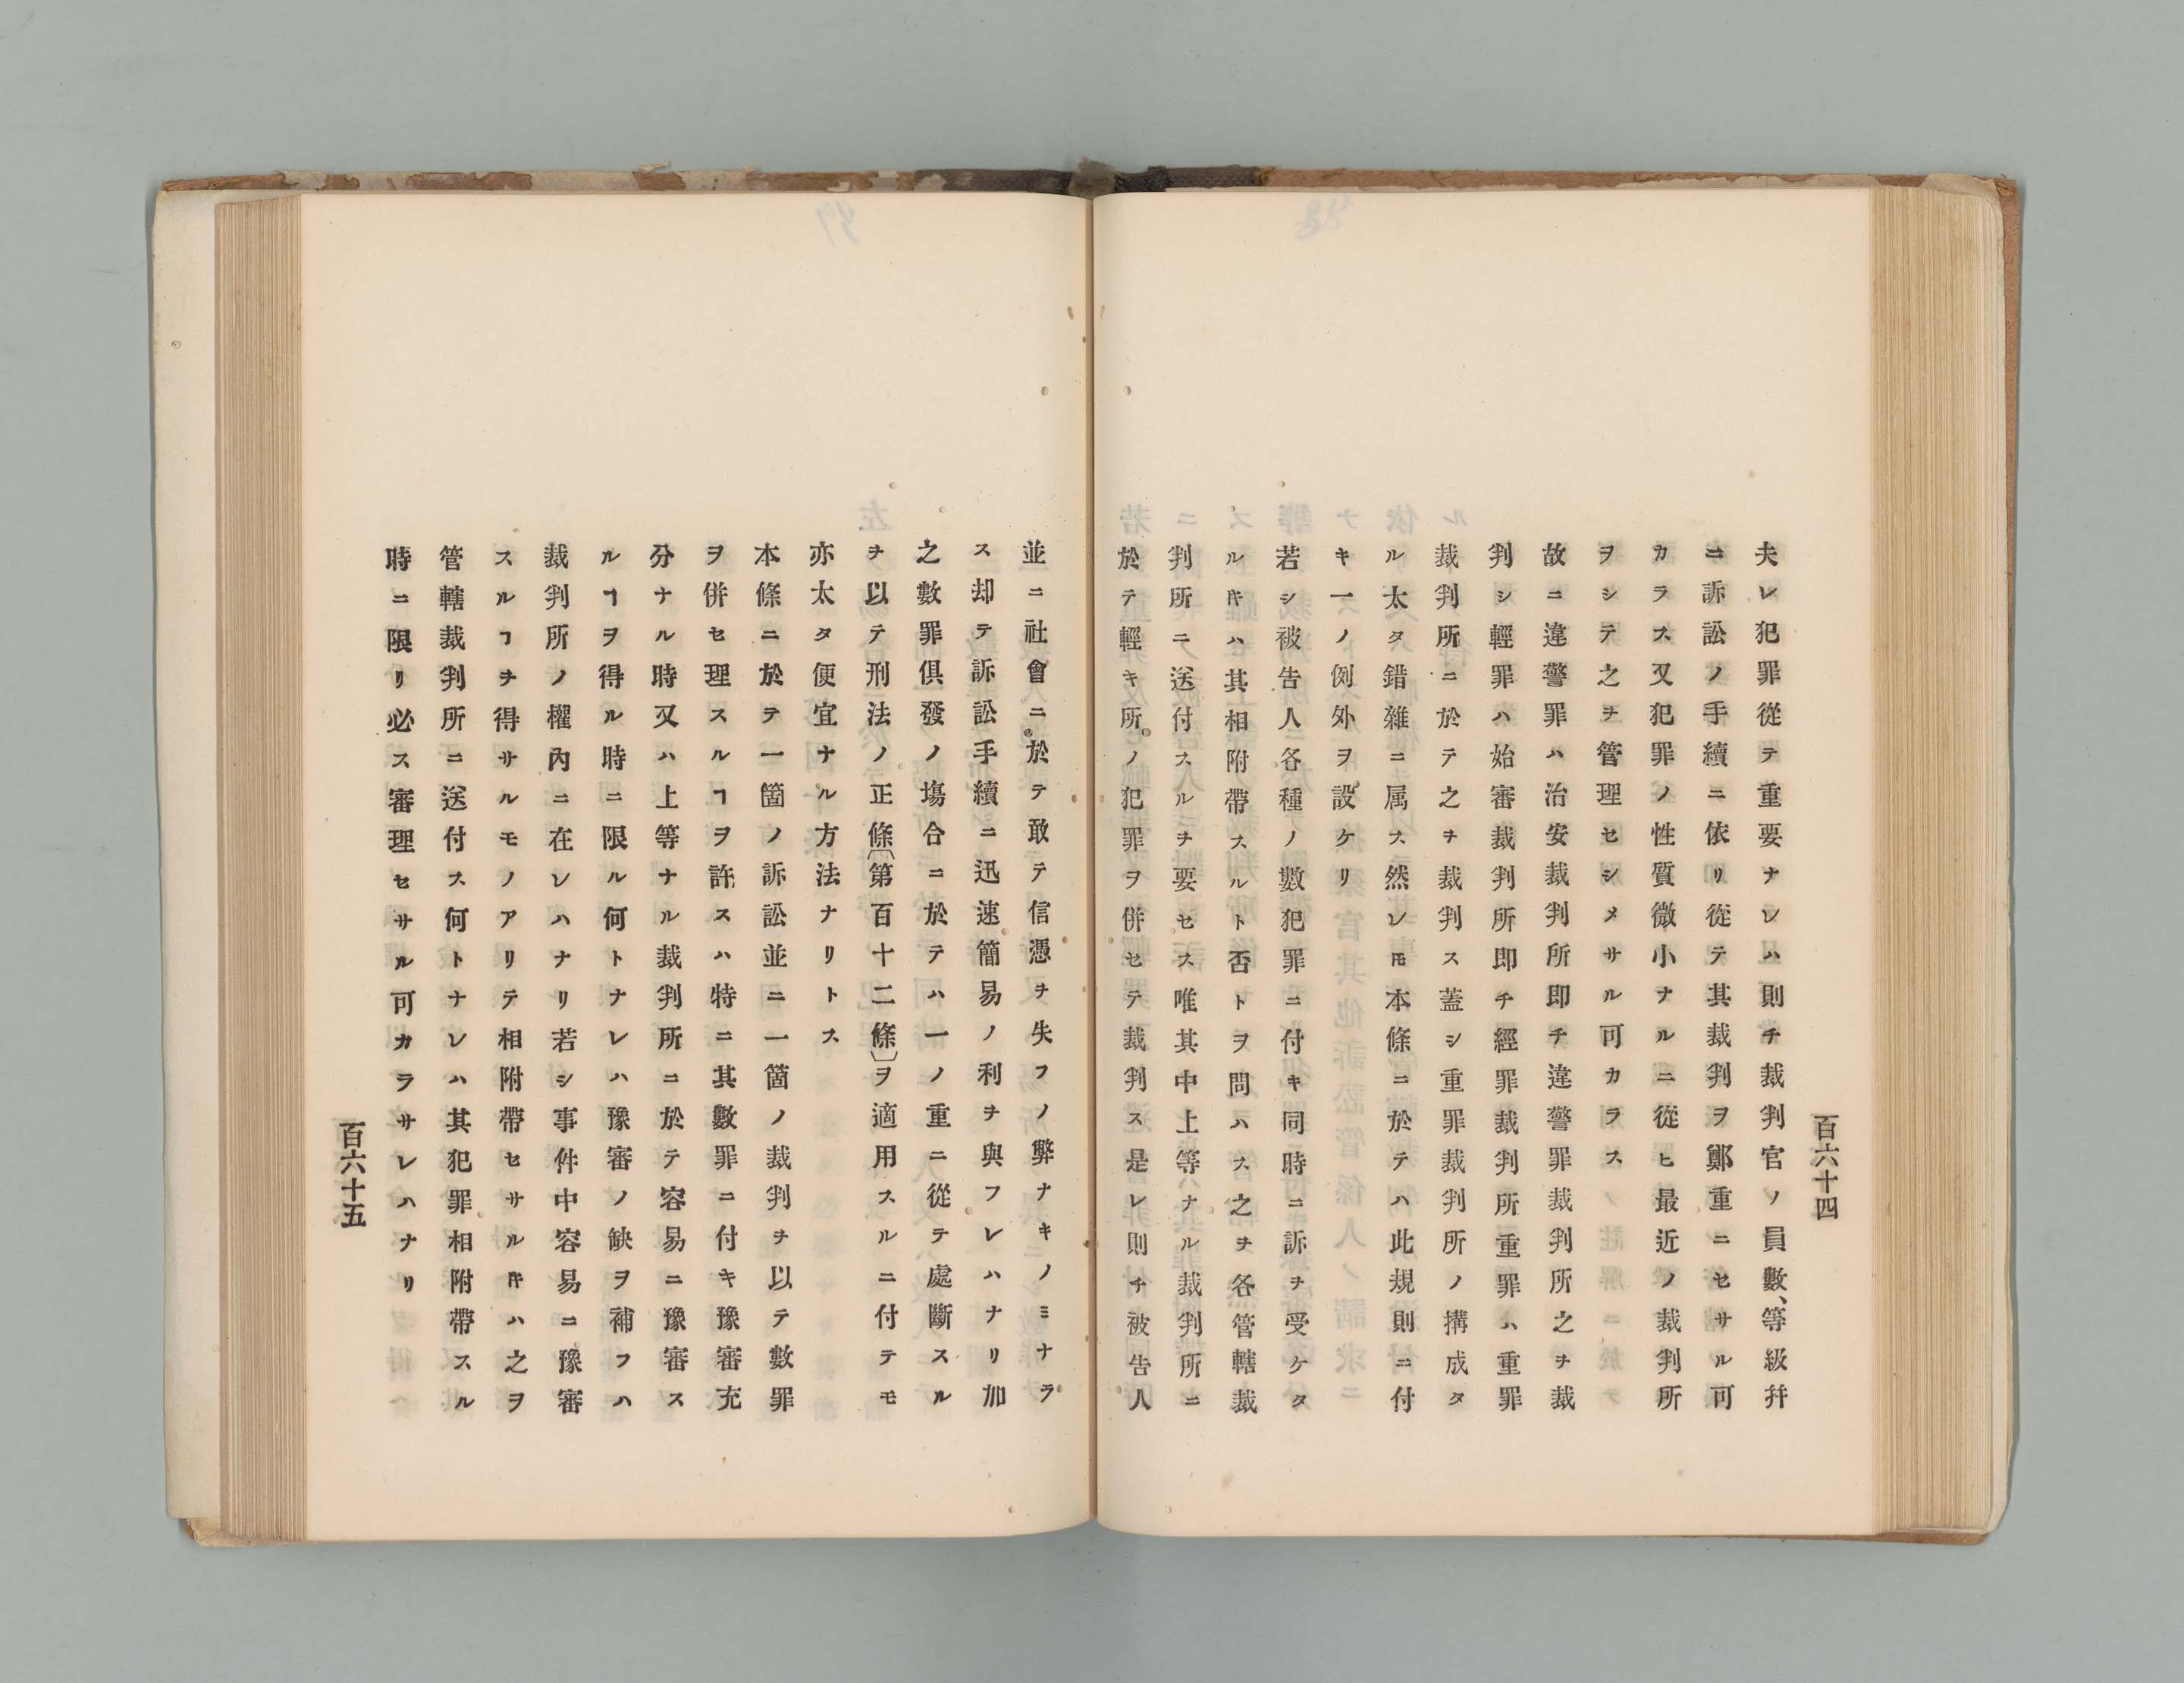 百六十四
夫レ犯罪從テ重要ナレハ則チ裁判官ノ員數、等級幷
ニ訴訟ノ手續ニ依リ從テ其裁判ヲ鄭重ニセサル可
カラス又犯罪ノ性質微小ナルニ從ヒ最近ノ裁判所
ヲシテ之ヲ管理セシメサル可カラス
故ニ違警罪ハ治安裁判所即チ違警罪裁判所之ヲ裁
判シ輕罪ハ始審裁判所即チ經罪裁判所重罪ハ重罪
裁判所ニ於テ之ヲ裁判ス蓋シ重罪裁判所ノ搆成タ
ル太タ錯雜ニ属ス然レ𪜈本條ニ於テハ此規則ニ付
キ一ノ例外ヲ設ケリ
若シ被告人各種ノ數犯罪ニ付キ同時ニ訴ヲ受ケタ
ル𪜈ハ其相附帶スルト否トヲ問ハス之ヲ各管轄裁
判所ニ送付スルヲ要セス唯其中上等ナル裁判所ニ
於テ輕キ所ノ犯罪ヲ併セテ裁判ス是レ則チ被告人
並ニ社會ニ於テ敢テ信憑ヲ失フノ弊ナキノミナラ
ス却テ訴訟手續ニ迅速簡易ノ利ヲ與フレハナリ加
之數罪俱發ノ塲合ニ於テハ一ノ重ニ從テ處斷スル
ヲ以テ刑法ノ正條〔第百十二條〕ヲ適用スルニ付テモ
亦太タ便宜ナル方法ナリトス
本條ニ於テ一箇ノ訴訟並ニ一箇ノ裁判ヲ以テ數罪
ヲ併セ理スルヿヲ許スハ特ニ其數罪ニ付キ豫審充
分ナル時又ハ上等ナル裁判所ニ於テ容易ニ豫審ス
ルヿヲ得ル時ニ限ル何トナレハ豫審ノ缺ヲ補フハ
裁判所ノ權內ニ在レハナリ若シ事件中容易ニ豫審
スルヿヲ得サルモノアリテ相附帶セサル𪜈ハ之ヲ
管轄裁判所ニ送付ス何トナレハ其犯罪相附帶スル
時ニ限リ必ス審理セサル可カラサレハナリ
百六十五